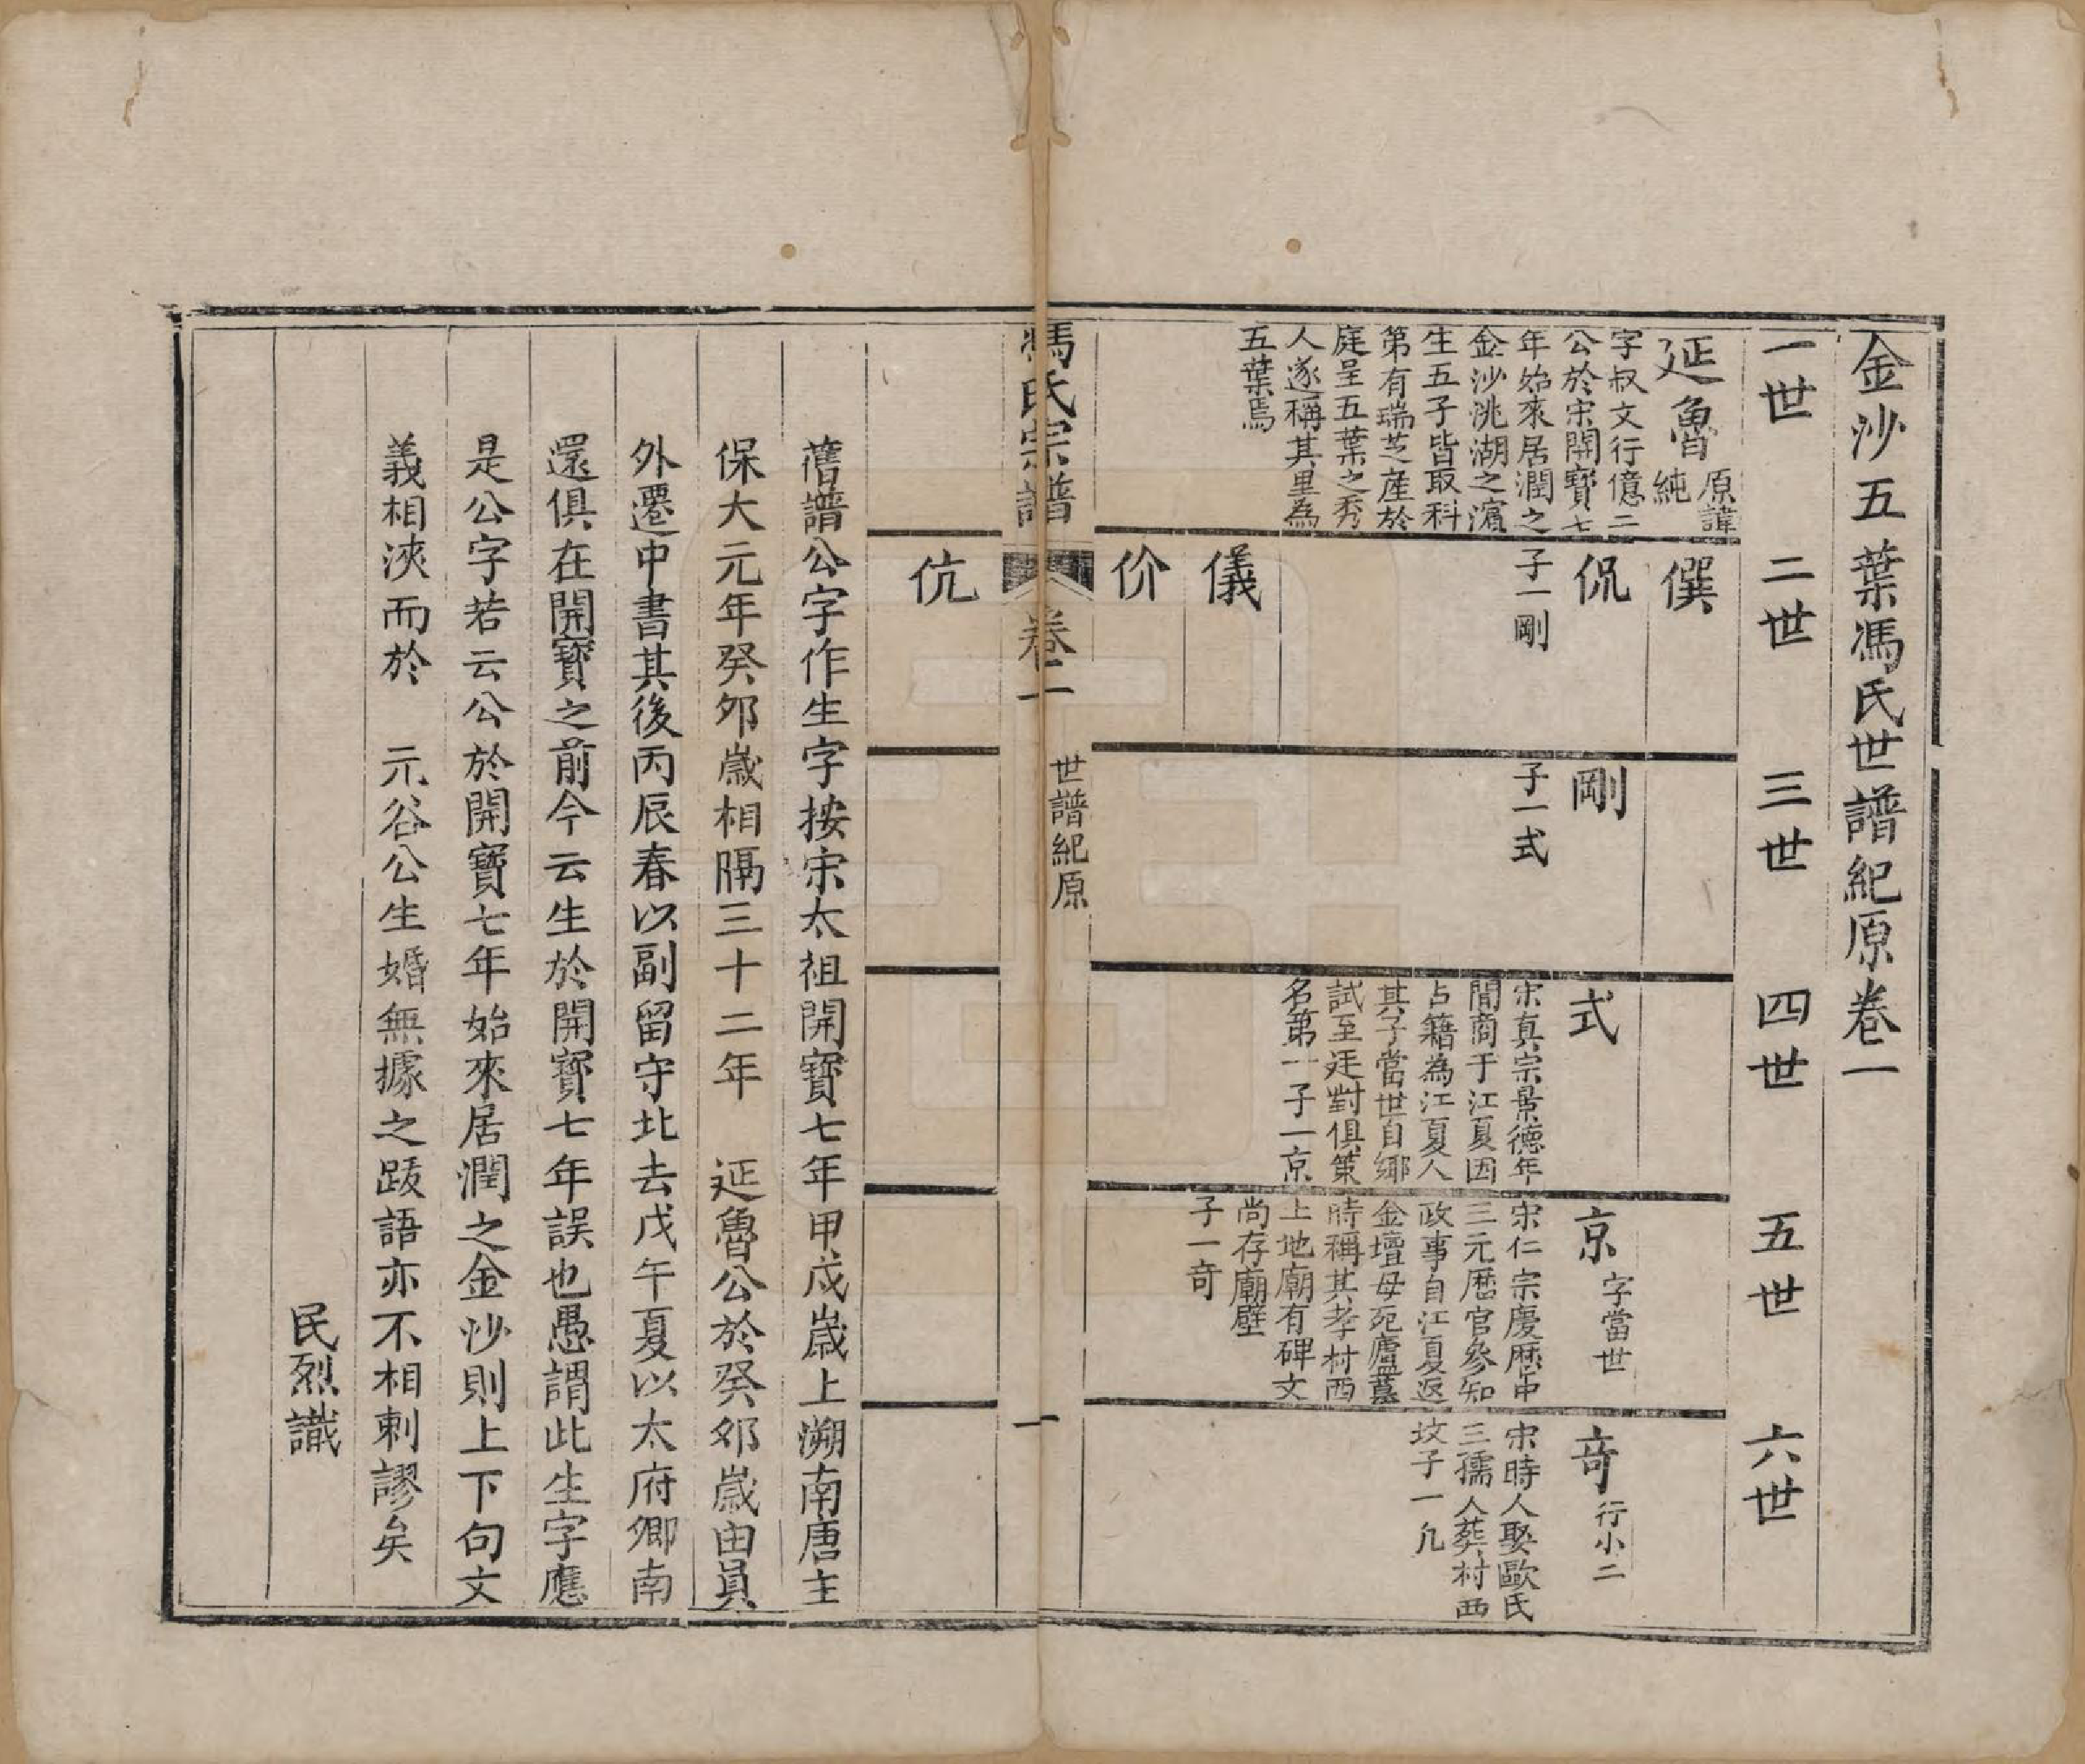 金沙五葉馮氏世譜紀原卷一
一世
二世
三世
四世
五世
六世
延魯
原諱
純
字叔文行億二
公於宋開寶七
年始來居潤之
金沙洮湖之濵
生五子皆取科
第有瑞芝産於
庭呈五葉之秀
人遂稱其里為
五葉焉
僎
侃
子一剛
儀
价
伉
剛
子一式
式
宋真宗景德年
間商于江夏因
占籍為江夏人
其子當世自鄉
試至廷對俱策
名第一子一京
京
字當世
宋仁宗慶厯中
三元厯官參知
政事自江夏返
金壇母死廬墓
時稱其孝村西
上地廟有碑文
尚存廟壁
子一竒
竒
行小二
宋時人娶歐氏
三孺人葬村西
坟子一凢
馮氏宗譜
卷二
世譜紀原
一
舊譜公字作生字按宋太祖開寶七年甲戌歲上溯南唐主
保大元年癸夘歲相隔三十二年　延魯公於癸夘歲由員
外遷中書其後丙辰春以副留守北去戊午夏以太府卿南
還俱在開寶之前今云生於開寶七年誤也愚謂此生字應
是公字若云公於開寶七年始來居潤之金沙則上下句文
義相浹而於　元谷公生婚無據之跋語亦不相剌謬矣
民烈識